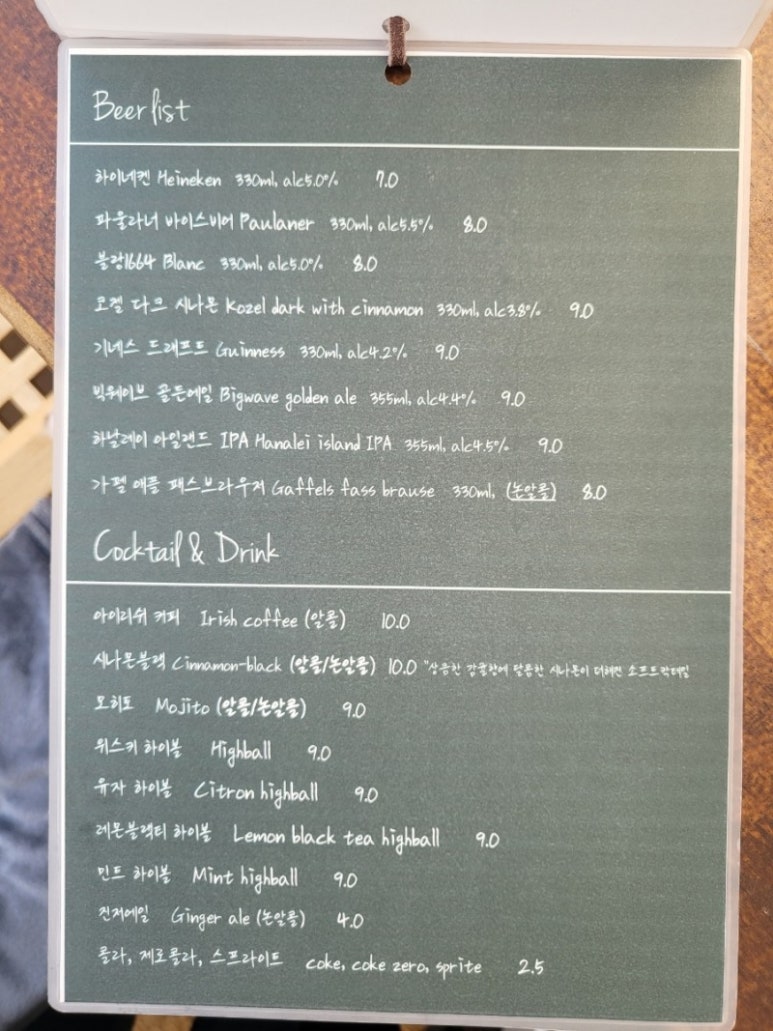 Beer list
하이네켄 Heineken 330ml, alc5.0% 7.0
파울라너 바이스비어 Paulaner 330ml, alc5.5% 8.0
블랑1664 Blanc 330ml, alc5.0% 8.0
코젤 다크 시나몬 Kozel dark with cinnamon 330ml, alc3.8% 9.0
기네스 드래프트 Guinness 330ml, alc4.2% 9.0
빅웨이브 골든에일 Bigwave golden ale 355ml, alc4.4% 9.0
하날레이 아일랜드 IPA Hanalei island IPA 355ml, alc4.5% 9.0
가펠 애플 패스브라우저 Gaffels fass brause 330ml, (논알콜) 8.0
Cocktail & Drink
아이리쉬 커피 Irish coffee (알콜) 10.0
시나몬블랙 Cinnamon-black (알콜/논알콜) 10.0 "상큼한 감귤향에 달콤한 시나몬이 더해진 소프트칵테일
모히토 Mojito (알콜/논알콜) 9.0
위스키 하이볼 Highball 9.0
유자 하이볼 Citron highball 9.0
레몬블랙티 하이볼 Lemon black tea highball 9.0
민트 하이볼 Mint highball 9.0
진저에일 Ginger ale (논알콜) 4.0
콜라, 제로콜라, 스프라이트 coke, coke zero, sprite 2.5